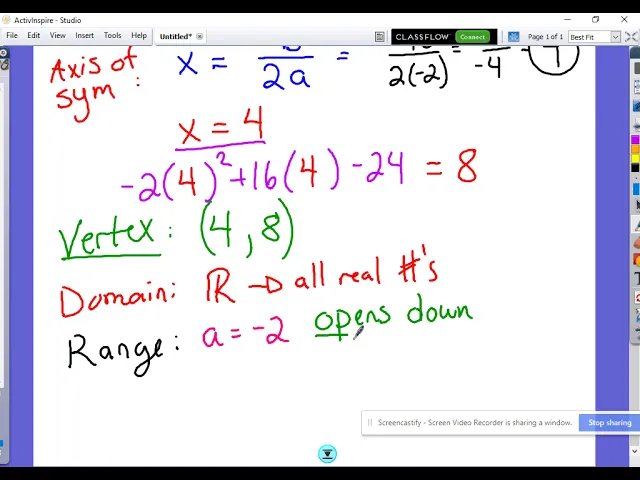 ActivInspire - Studio
File Edit View Insert Tools Help Untitled* CLASSFLOW Connect Page 1 of 1 Best Fit
Axis of
sym :
x = 2a = 2(-2) = -4 4
x = 4
-2(4)²+16(4) -24 = 8
Vertex : (4, 8)
Domain: ℝ → all real #'s
Range: a = -2 opens down
Screencastify - Screen Video Recorder is sharing a window. Stop sharing